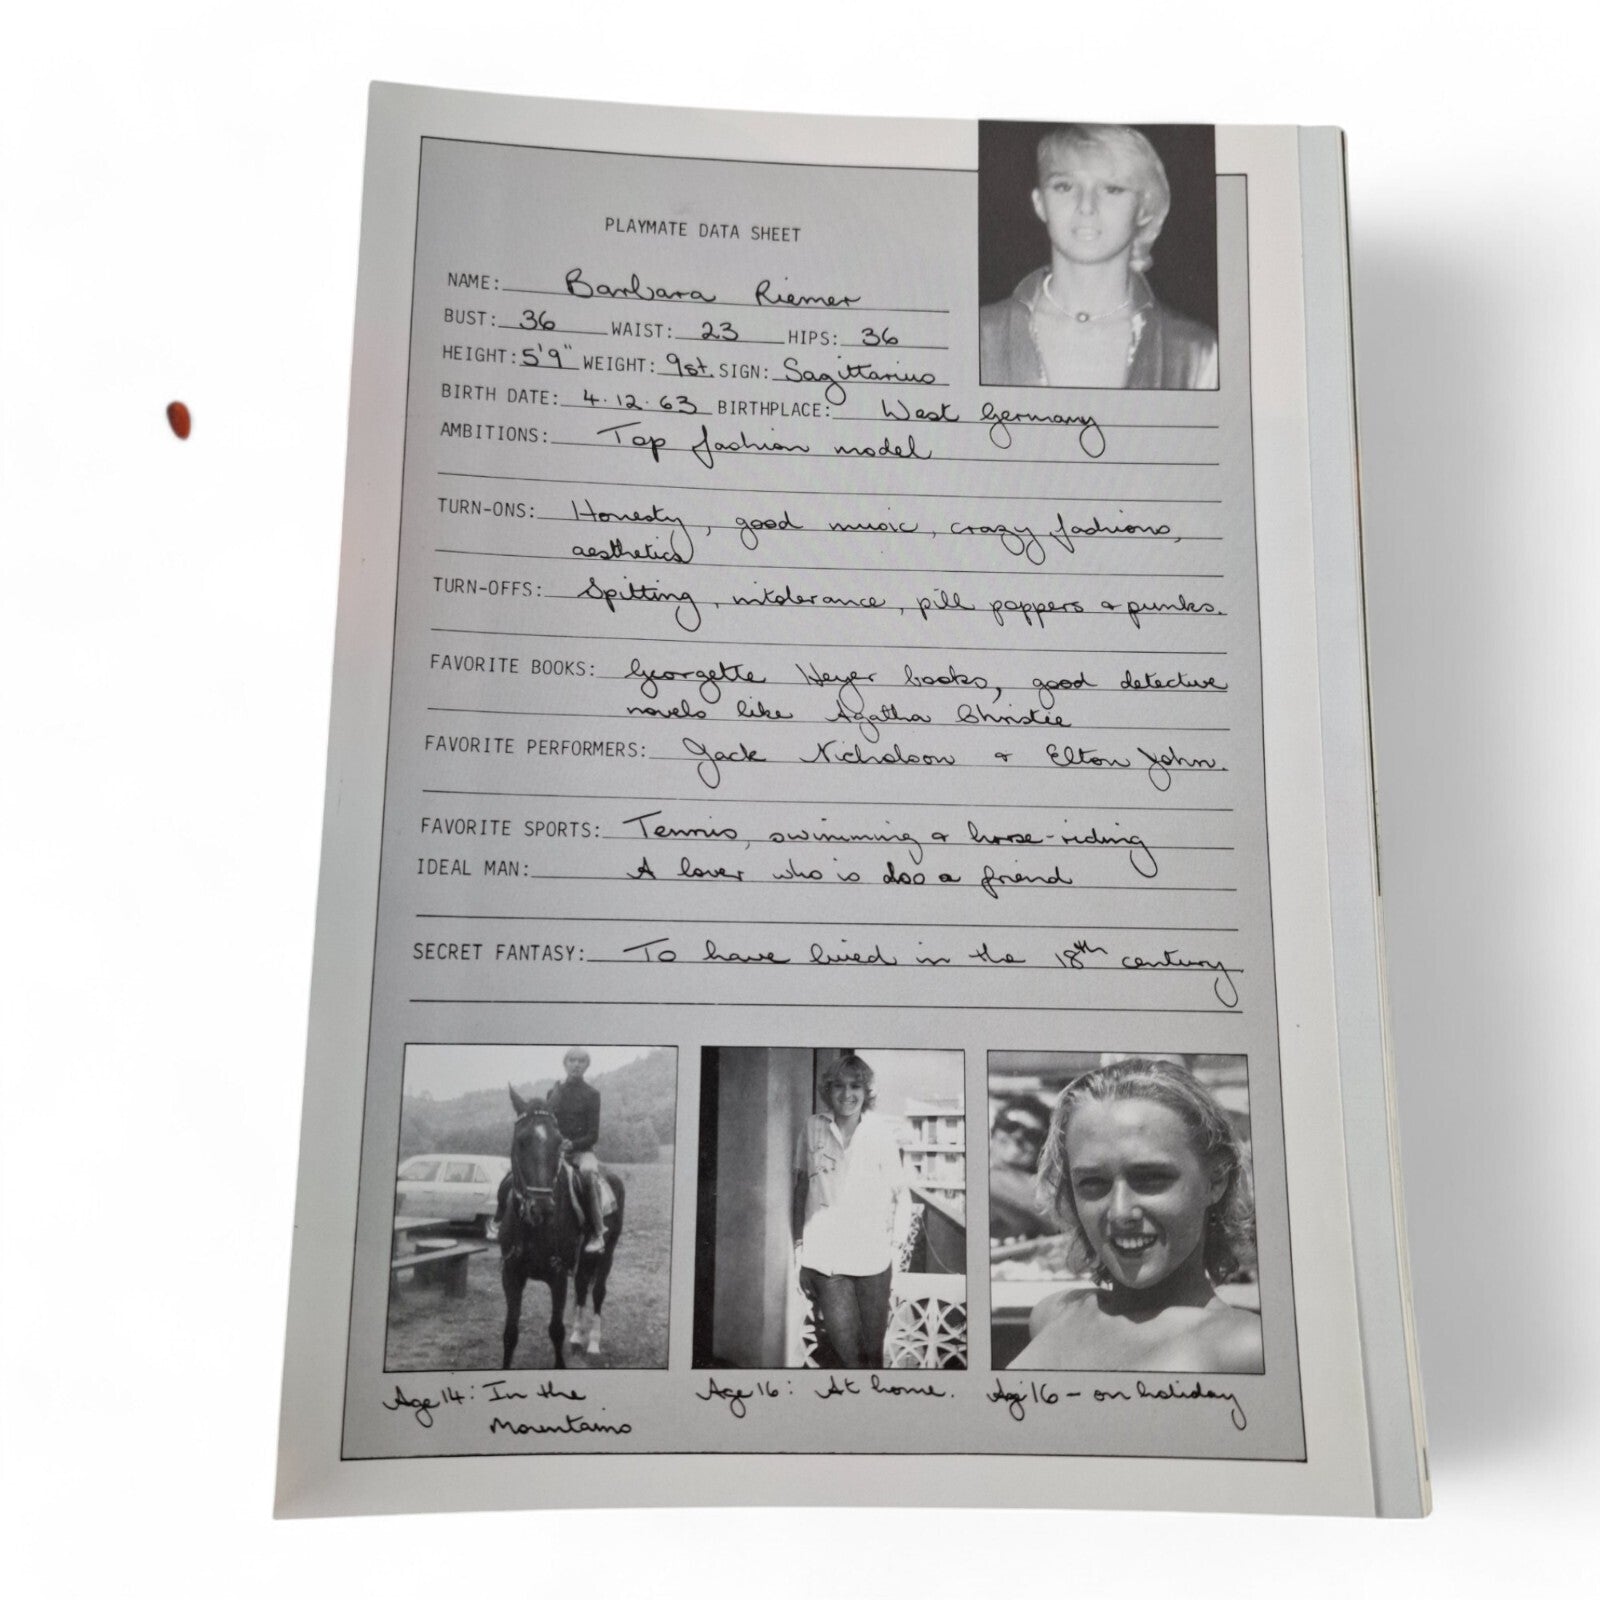 PLAYMATE DATA SHEET
NAME: Barbara Riemer
BUST: 36 WAIST: 23 HIPS: 36
HEIGHT: 5'9" WEIGHT: 9st. SIGN: Sagittarius
BIRTH DATE: 4.12.63 BIRTHPLACE: West Germany
AMBITIONS: Top fashion model
TURN-ONS: Honesty, good music, crazy fashions,
aesthetics
TURN-OFFS: Spitting, intolerance, pill poppers & punks.
FAVORITE BOOKS: Georgette Heyer books, good detective
novels like Agatha Christie
FAVORITE PERFORMERS: Jack Nicholson & Elton John.
FAVORITE SPORTS: Tennis, swimming & horse-riding
IDEAL MAN: A lover who is also a friend
SECRET FANTASY: To have lived in the 18th century
Age 14: In the
Mountains
Age 16: At home.
Age 16 - on holiday